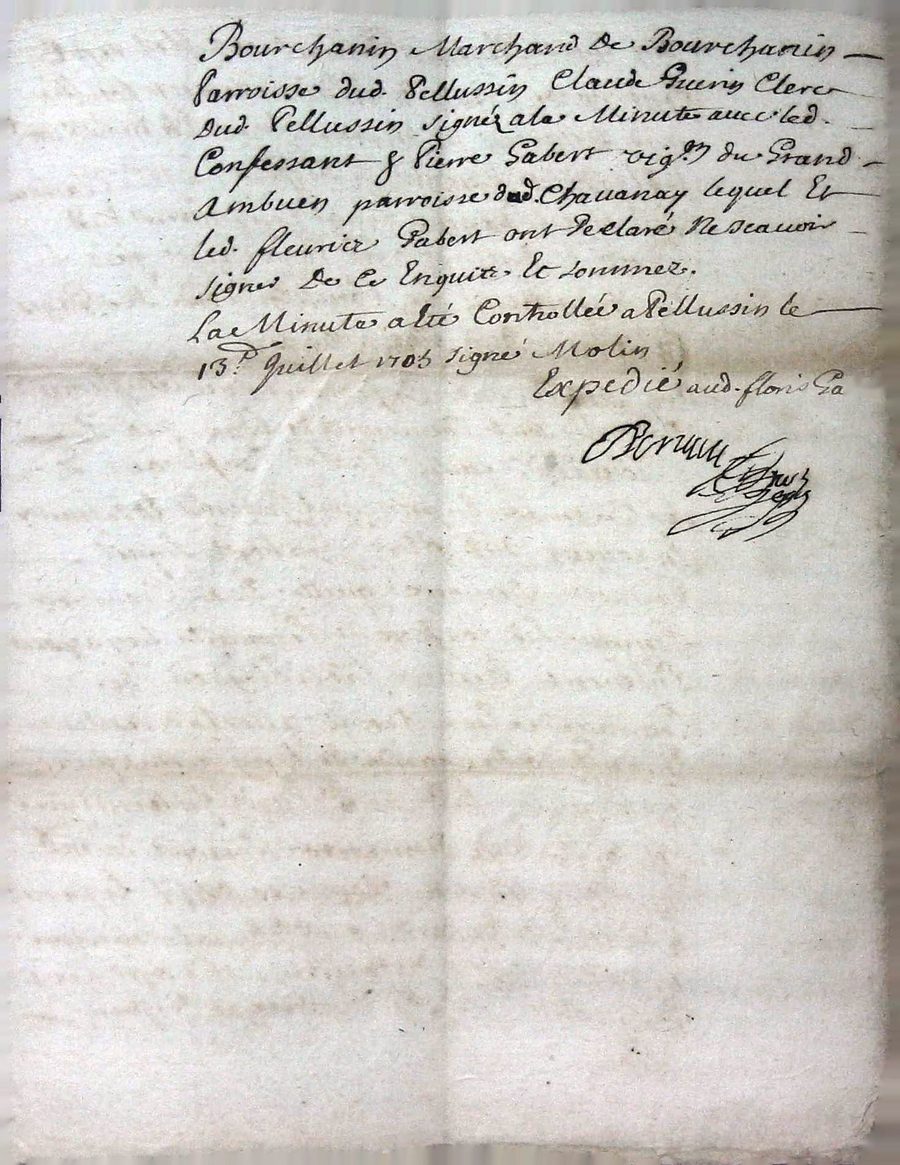 Bourchanin Marchand de Bourchanin
Parroisse dud. Pellussin Claude Guerin Clerc
dud. Pellussin signéz a la Minute avec led.
Confessant & Pierre Gabert vig.on du Grand
Ambuen parroisse dud. Chavanay lequel Et
led. fleuriez Gabert ont Declaré Ne scavoir
signer De ce Enquits Et sommez.
La Minute a Eté Controllée a Pellussin le
13.e Juillet 1705 signé Molin
Expedié aud. floris Ga